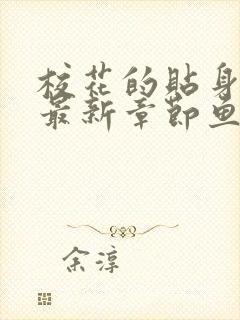 校花的贴身
最新章节鱼
余淳